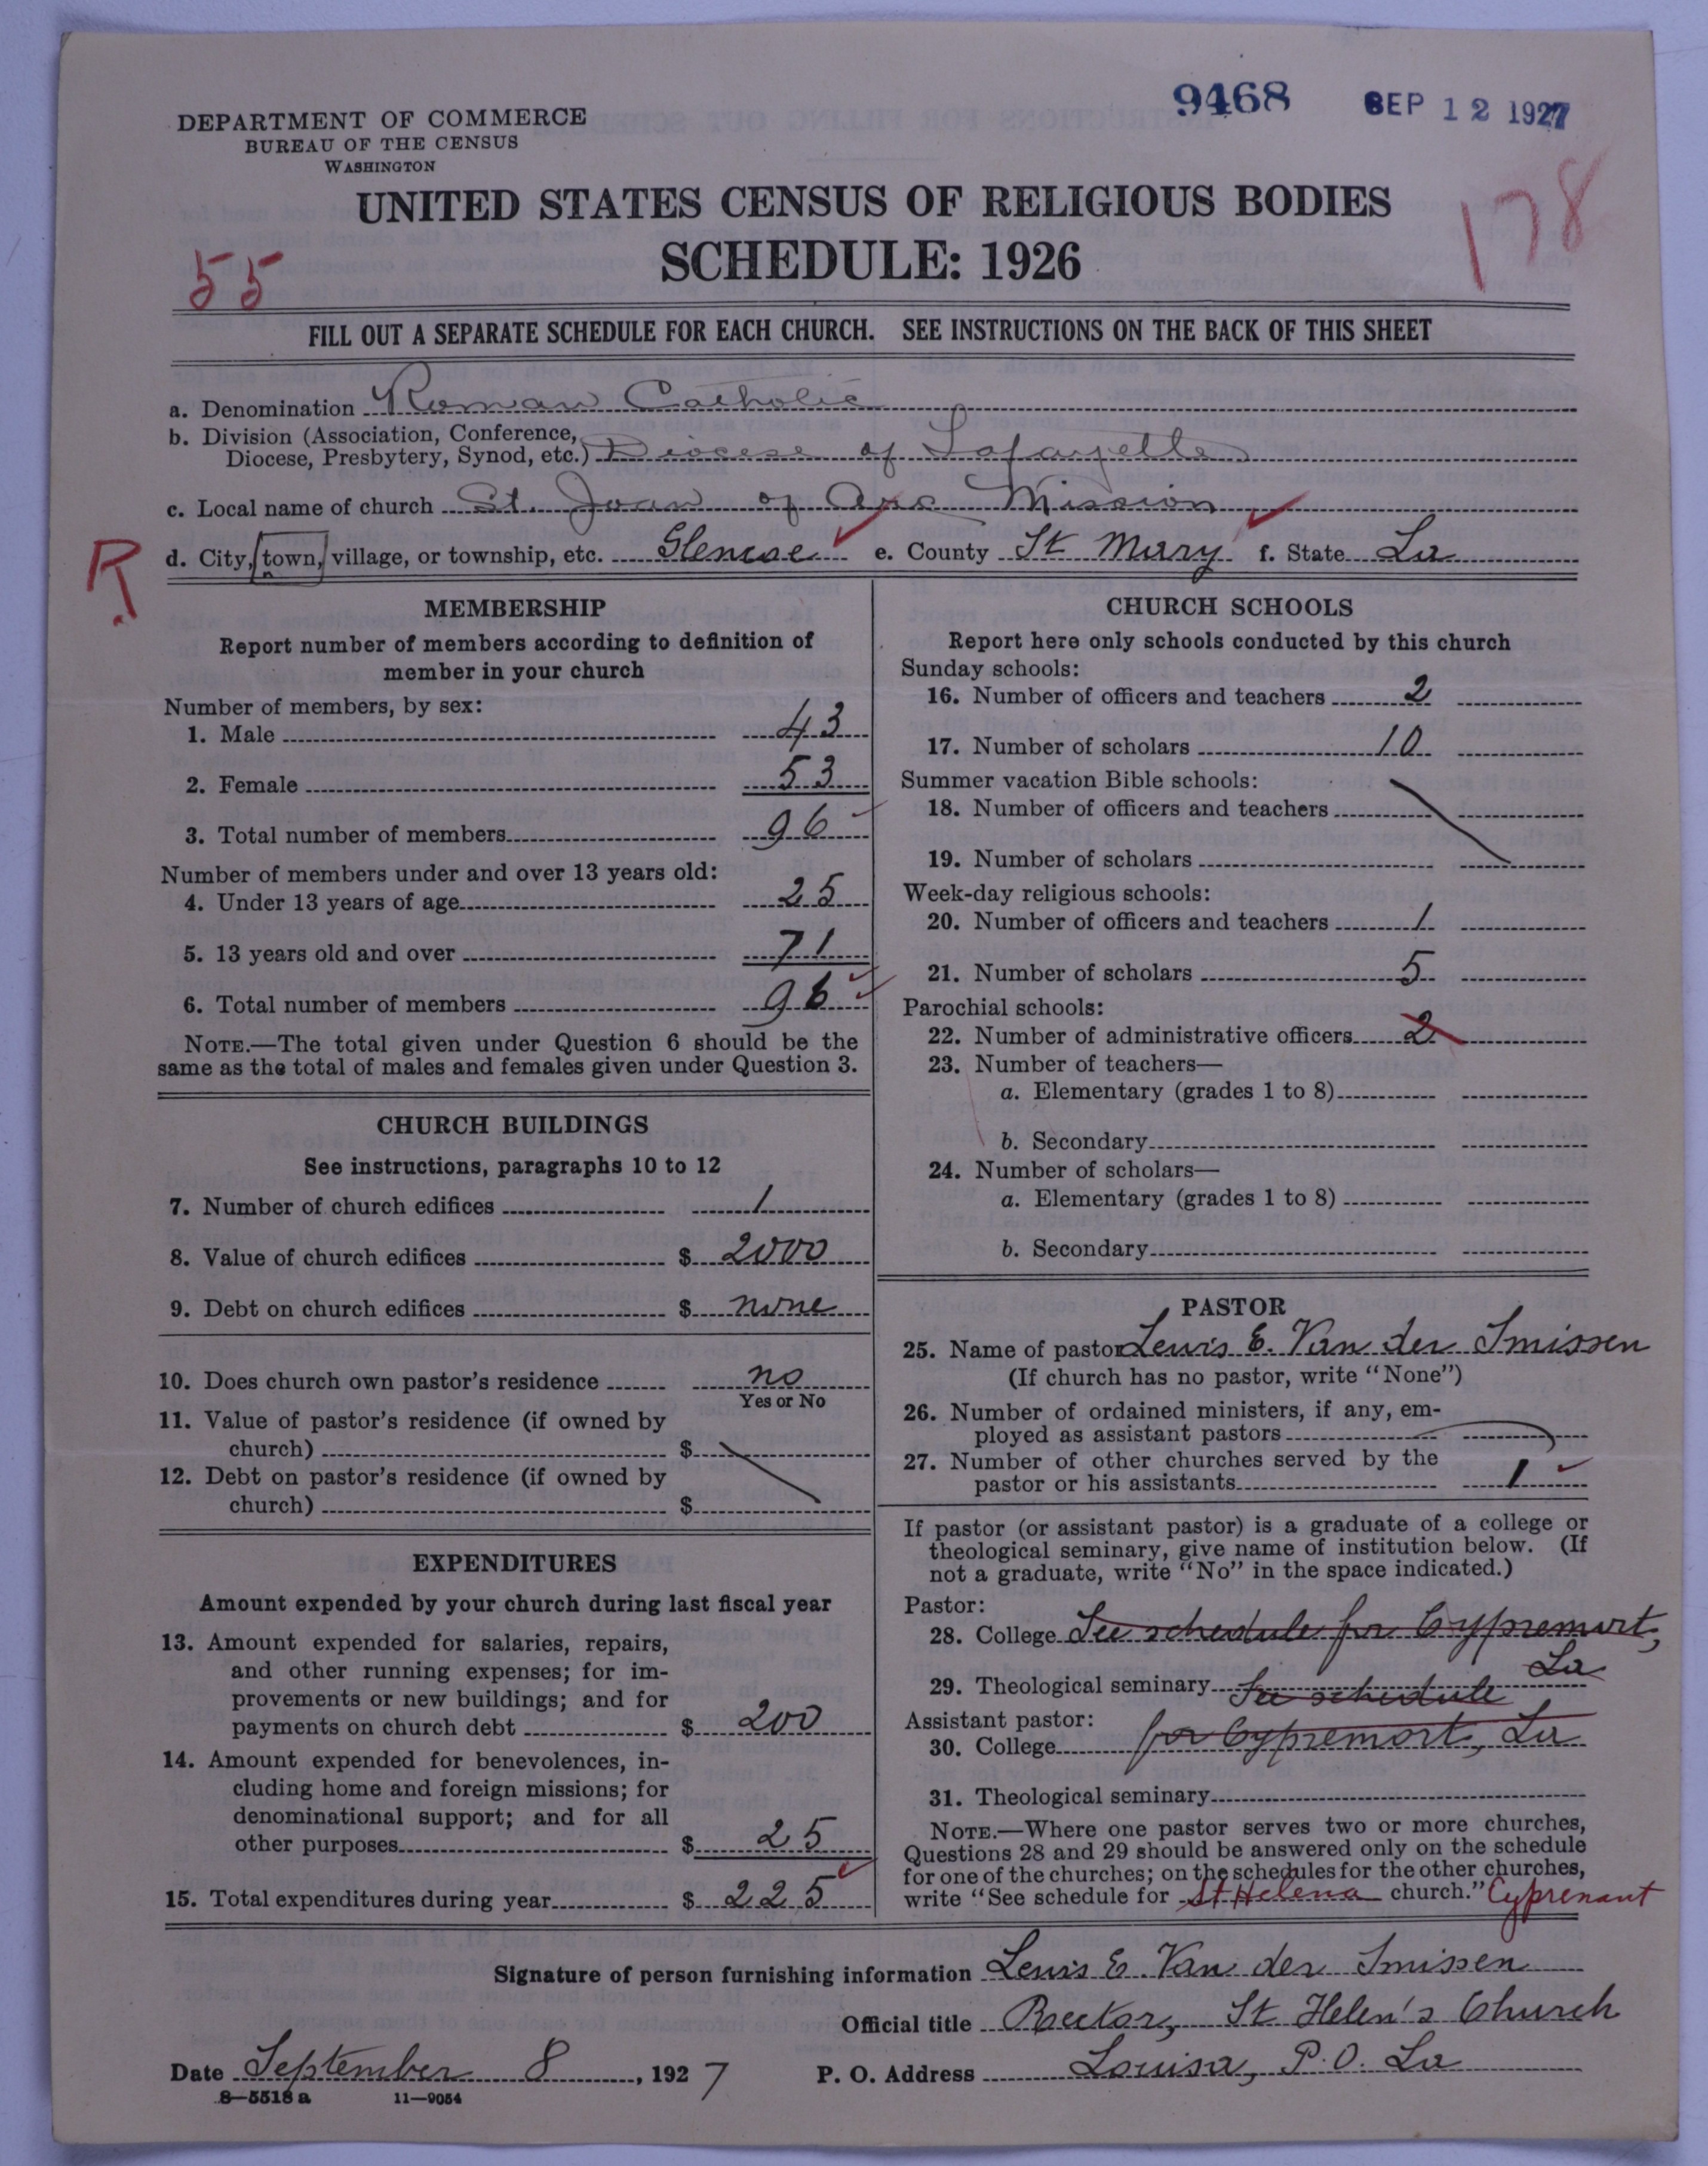 9468 SEP 12 1927
DEPARTMENT OF COMMERCE
BUREAU OF THE CENSUS
WASHINGTON
178
UNITED STATES CENSUS OF RELIGIOUS BODIES
SCHEDULE: 1926
55
FILL OUT A SEPARATE SCHEDULE FOR EACH CHURCH. SEE INSTRUCTIONS ON THE BACK OF THIS SHEET
a. Denomination Roman Catholic
b. Division (Association, Conference,
Diocese, Presbytery, Synod, etc.) Diocese of Lafayette
c. Local name of church St. Joan of Arc Mission
R d. City, town, village, or township, etc. Glencoe e. County St Mary f. State La
MEMBERSHIP
Report number of members according to definition of
member in your church
Number of members, by sex:
1. Male 43
2. Female 53
3. Total number of members 96
Number of members under and over 13 years old:
4. Under 13 years of age 25
5. 13 years old and over 71
6. Total number of members 96
NOTE.—The total given under Question 6 should be the
same as the total of males and females given under Question 3.
CHURCH BUILDINGS
See instructions, paragraphs 10 to 12
7. Number of church edifices 1
8. Value of church edifices $ 2000
9. Debt on church edifices $ none
10. Does church own pastor's residence no
Yes or No
11. Value of pastor's residence (if owned by
church) $
12. Debt on pastor's residence (if owned by
church) $
EXPENDITURES
Amount expended by your church during last fiscal year
13. Amount expended for salaries, repairs,
and other running expenses; for im-
provements or new buildings; and for
payments on church debt $ 200
14. Amount expended for benevolences, in-
cluding home and foreign missions; for
denominational support; and for all
other purposes $ 25
15. Total expenditures during year $ 225
CHURCH SCHOOLS
Report here only schools conducted by this church
Sunday schools:
16. Number of officers and teachers 2
17. Number of scholars 10
Summer vacation Bible schools:
18. Number of officers and teachers
19. Number of scholars
Week-day religious schools:
20. Number of officers and teachers 1
21. Number of scholars 5
Parochial schools:
22. Number of administrative officers 2
23. Number of teachers—
a. Elementary (grades 1 to 8)
b. Secondary
24. Number of scholars—
a. Elementary (grades 1 to 8)
b. Secondary
PASTOR
25. Name of pastor Lewis E. Van der Smissen
(If church has no pastor, write "None")
26. Number of ordained ministers, if any, em-
ployed as assistant pastors
27. Number of other churches served by the
pastor or his assistants 1
If pastor (or assistant pastor) is a graduate of a college or
theological seminary, give name of institution below. (If
not a graduate, write "No" in the space indicated.)
Pastor:
28. College See schedule for Cypremort,
La
29. Theological seminary See schedule
Assistant pastor:
30. College for Cypremort, La
31. Theological seminary
NOTE.—Where one pastor serves two or more churches,
Questions 28 and 29 should be answered only on the schedule
for one of the churches; on the schedules for the other churches,
write "See schedule for St Helena church." Cyprenant
Signature of person furnishing information Lewis E. Van der Smissen
Official title Rector, St Helen's Church
Date September 8, 1927 P. O. Address Louisa, P.O. La
8—5518 a 11—9054